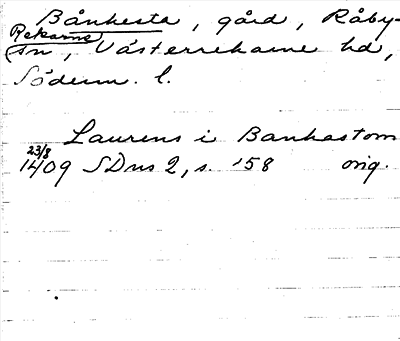 Bånkesta, gård, Råby-
Rekarne
sn, Västerrekarne hd,
Söderm. l.
Laurens i Banhastom
23/8
1409 SDns 2, s. 158 orig.